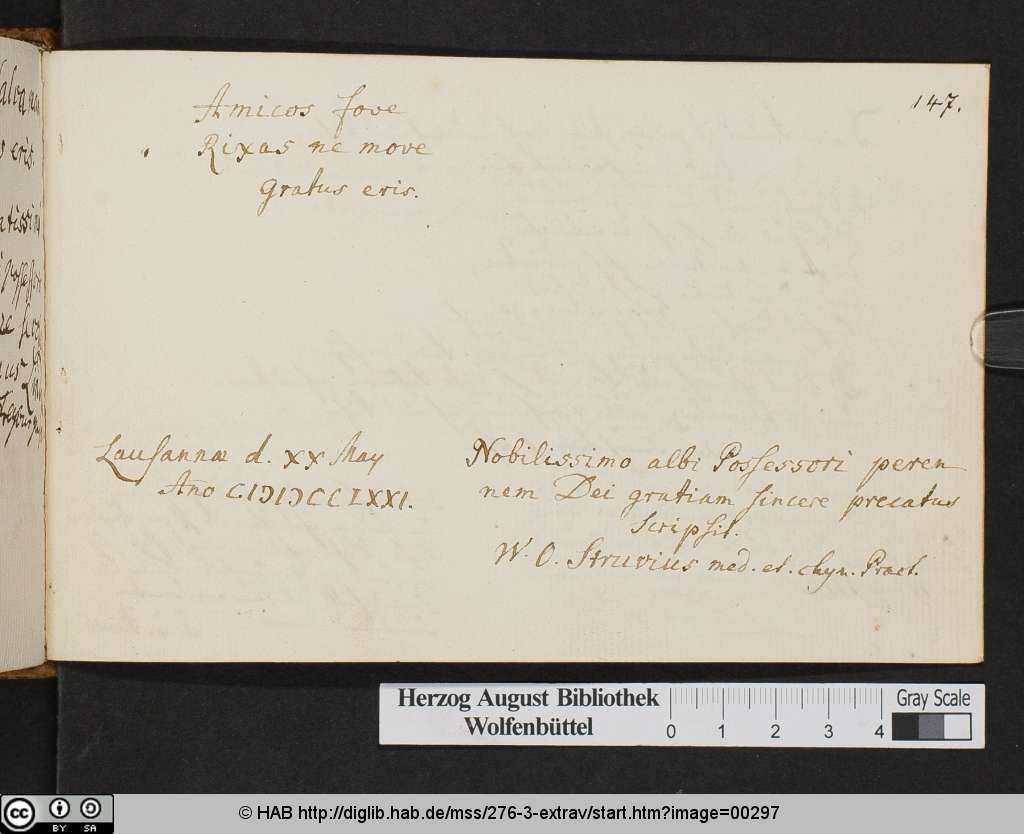 147.
Amicos fove
Rixas ne move
gratus eris.
Lausannæ d. XX May
Año CIƆIƆCCLXXI.
Nobilissimo albi Possessori peren
nem Dei gratiam sincere precatus
scripsit.
W. O. Struvius med. et. chyr. Pract.
Herzog August Bibliothek
Wolfenbüttel
0 1 2 3 4
Gray Scale
cc BY SA
© HAB http://diglib.hab.de/mss/276-3-extrav/start.htm?image=00297